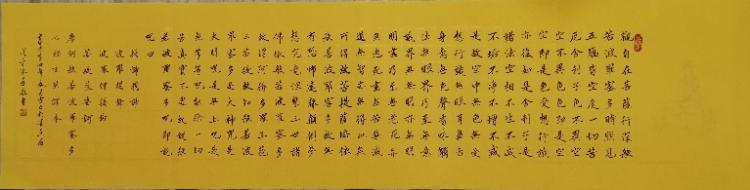 觀自在菩薩行深般
若波羅蜜多時照見
五蘊皆空度一切苦
厄舍利子色不異空
空不異色色即是空
空即是色受想行識
亦復如是舍利子是
諸法空相不生不滅
不垢不淨不增不減
是故空中無色無受
想行識無眼耳鼻舌
身意無色聲香味觸
法無眼界乃至無意
識界無無明亦無無
明盡乃至無老死亦
無老死盡無苦集滅
道無智亦無得以無
所得故菩提薩埵依
般若波羅蜜多故心
無罣礙無罣礙故無
有恐怖遠離顛倒夢
想究竟涅槃三世諸
佛依般若波羅蜜多
故得阿耨多羅三藐
三菩提故知般若波
羅蜜多是大神咒是
大明咒是無上咒是
無等等咒能除一切
苦真實不虛故說般
若波羅蜜多咒即說
咒曰
揭諦揭諦
波羅揭諦
波羅僧揭諦
菩提薩婆訶
摩訶般若波羅蜜多
心經